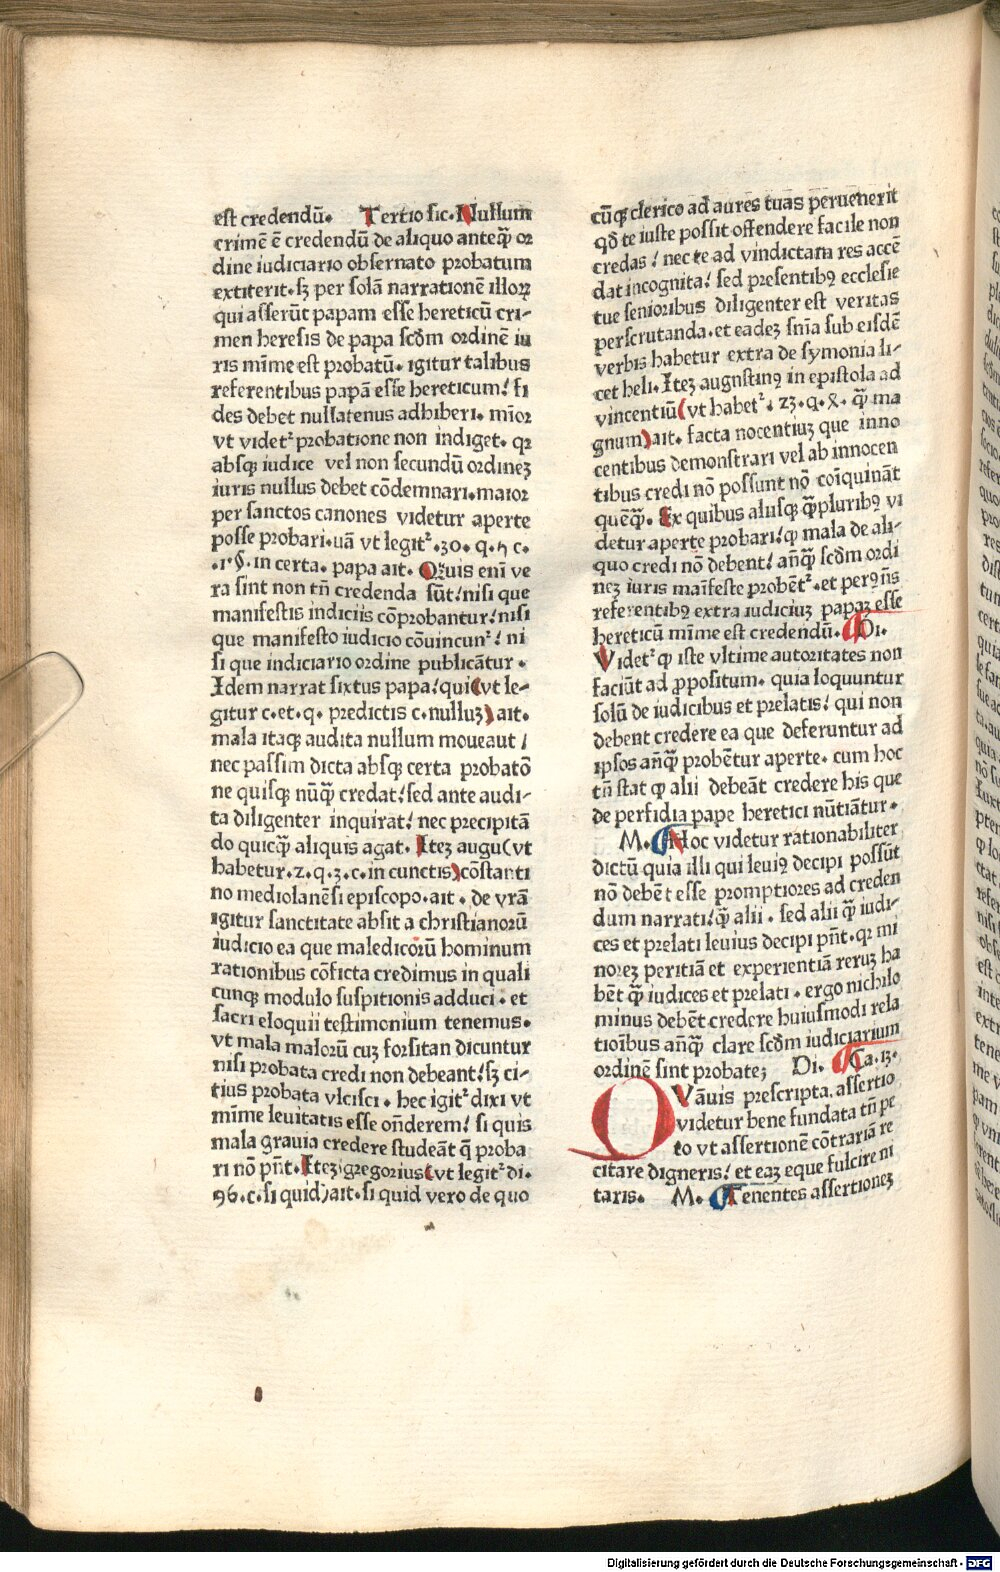 est credendū. Tertio sic. Nullum
crimē ē credendū de aliquo anteq̄ꝫ or
dine iudiciario obseruato probatum
extiterit. sꝫ per solā narrationē illoꝝ
qui asserūt papam esse hereticū cri-
men heresis de papa scd̄m ordinē iu
ris mīme est probatū. igitur talibus
referentibus papā esse hereticum! fi
des debet nullatenus adhiberi. mīor
vt videtᷣ probatione non indiget. qꝛ
absqꝫ iudice vel non secundū ordineꝫ
iuris nullus debet cōdemnari. maior
per sanctos canones videtur aperte
posse probari. uā vt legitᷣ .30. q. 5 c.
.1. §. in certa. papa ait. Quis eni ve
ra sint non tn̄ credenda sūt! nisi que
manifestis indiciis cōprobantur! nisi
que manifesto iudicio cōvincunᷣ! ni
si que indiciario ordine publicātur.
Idem narrat sixtus papa! qui(vt le-
gitur c. et. q. predictis c. nulluꝫ) ait.
mala itaqꝫ audita nullum moueant /
nec passim dicta absqꝫ certa probatō
ne quisqꝫ nūq̄ꝫ credat! sed ante audi-
ta diligenter inquirat! nec precipitā
do quicq̄ꝫ aliquis agat. Iteꝫ augu(vt
habetur. 2. q. 3. c. in cunctis)cōstanti
no mediolanēsi episcopo. ait. de vr̄a
igitur sanctitate absit a christianorū
iudicio ea que maledicorū hominum
rationibus cōficta credimus in quali
cunqꝫ modulo suspitionis adduci. et
sacri eloquii testimonium tenemus.
vt mala malorū cuꝫ forsitan dicuntur
nisi probata credi non debeant! sꝫ ci-
tius probata vlcisci. hec igitᷣ dixi vt
mīme leuitatis esse on̄derem! si quis
mala grauia credere studeāt q̄ proba
ri nō pn̄t. Iteꝫ gregorius(vt legitᷣ di.
96. c. si quid)ait. si quid vero de quo
cūqꝫ clerico ad aures tuas peruenerit
qđ te iuste possit offendere facile non
credas! nec te ad vindictam res accē
dat incognita! sed presentibꝰ ecclesie
tue senioribus diligenter est veritas
perscrutanda. et eadeꝫ snīa sub eisdē
verbis habetur extra de symonia li-
cet heli. Iteꝫ augustinꝰ in epistola ad
vincentiū(vt habetᷣ. 23. q. 4. q̄ꝫ ma
gnum)ait. facta nocentiuꝫ que inno
centibus demonstrari vel ab innocen
tibus credi nō possunt nō coīquināt
quēq̄ꝫ. Ex quibus aliisqꝫ q̄ꝫpluribꝰ vi
detur aperte probari! ꝙ mala de ali-
quo credi nō debent! anq̄ꝫ scd̄m ordi
neꝫ iuris maīfeste probēᷣt. et per ꝯn̄s
referentibꝰ extra iudiciuꝫ papaꝫ esse
hereticū mīme est credendū. Di.
Videtᷣ ꝙ iste vltime autoritates non
faciūt ad ꝓpositum. quia loquuntur
solū de iudicibus et prelatis! qui non
debent credere ea que deferuntur ad
ipsos anq̄ꝫ probētur aperte. cum hoc
tn̄ stat ꝙ alii debeāt credere his que
de perfidia pape heretici nūtiātur.
M. Hoc videtur rationabiliter
dictū quia illi qui leuiꝰ decipi possūt
nō debēt esse promptiores ad creden
dum narrati! ꝙ alii. sed alii q̄ꝫ iudi-
ces et prelati leuius decipi pn̄t. qꝛ mi
noreꝫ peritiā et experientiā reruꝫ ha
bēt q̄ꝫ iudices et prelati. ergo nichilo
minus debēt credere huiusmodi rela
tioībus anq̄ꝫ clare scd̄m iudiciarium
ordinē sint probate; Di. Ca. 13.
QVāuis prescripta. assertio
videtur bene fundata tn̄ pe
to vt assertionē cōtrariā re
citare digneris! et eaꝫ eque fulcire ni
taris. M. Tenentes assertioneꝫ
Digitalisierung gefördert durch die Deutsche Forschungsgemeinschaft - DFG